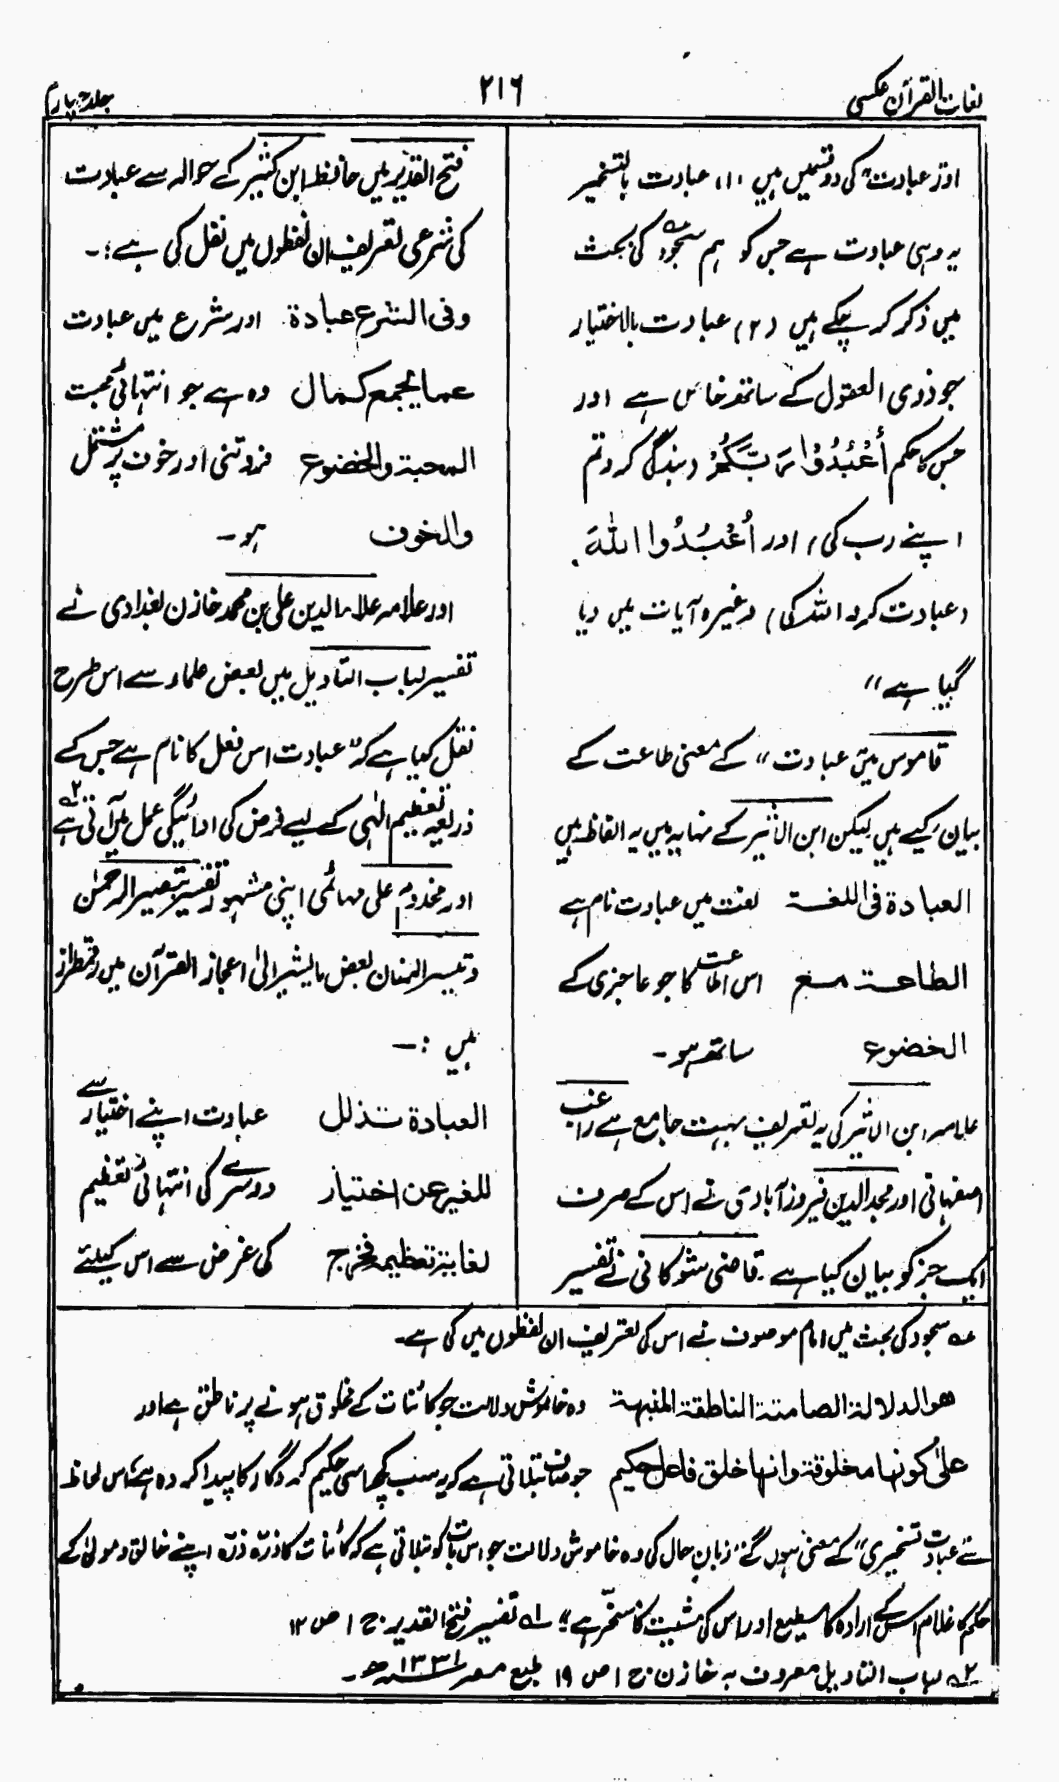 لغات القرآن عکسی
۲۱۶
جلد چہارم
اور عبادت کی دو قسمیں ہیں (۱) عبادت بالتسخیر
یہ وہی عبادت ہے جس کو ہم سجود کی بحث
میں ذکر کر چکے ہیں (۲) عبادت بالاختیار
جو ذوی العقول کے ساتھ خاص ہے اور
جس کا حکم اُعْبُدُوْا رَبَّکُمْ (بندگی کرو تم
اپنے رب کی) اور اُعْبُدُوا اللهَ
(عبادت کرو اللہ کی) وغیرہ آیات میں دیا
گیا ہے"
قاموس میں عبادت" کے معنی طاعت کے
بیان کیے ہیں لیکن ابن الاثیر کے نہایہ میں یہ الفاظ ہیں
العبادة فی اللغة لغت میں عبادت نام ہے
الطاعة مع اس اطاعت کا جو عاجزی کے
الخضوع ساتھ ہو۔
علامہ ابن الاثیر کی یہ تعریف بہت جامع ہے راغب
اصفہانی اور مجدالدین فیروزآبادی نے اس کے صرف
ایک جز کو بیان کیا ہے۔ قاضی شوکانی نے تفسیر
فتح القدیر میں حافظ ابن کثیر کے حوالہ سے عبادت
کی شرعی تعریف ان لفظوں میں نقل کی ہے:۔
وفی الشرع عبادة اور شرع میں عبادت
عما یجمع کمال وہ ہے جو انتہائی محبت
المحبة والخضوع فروتنی اور خوف پر مشتمل
والخوف ہو۔
اور علامہ علاء الدین علی بن محمد خازن بغدادی نے
تفسیر لباب التاویل میں بعض علماء سے اس طرح
نقل کیا ہے کہ "عبادت اس فعل کا نام ہے جس کے
ذریعہ تعظیم الٰہی کے لیے فرض کی ادائیگی عمل میں آتی ہے ۲
اور مخدوم علی مہائمی اپنی مشہور تفسیر تبصیر الرحمٰن
و تیسیر المنان بعض ما یشیر الیٰ اعجاز القرآن میں رقمطراز
ہیں :۔
العبادة تذلل عبادت اپنے اختیار سے
للغیر عن اختیار دوسرے کی انتہائی تعظیم
لغایة تعظیمه فخرج کی غرض سے اس کیلئے
عہ سجود کی بحث میں امام موصوف نے اس کی تعریف ان لفظوں میں کی ہے۔
هو الدلالة الصامتة الناطقة المنبهة وہ خاموش دلالت جو کائنات کے مخلوق ہونے پر ناطق ہے اور
علی کونها مخلوقة وانها خلق فاعل حکیم جو صاف بتلاتی ہے کہ یہ سب کچھ اسی حکیم کردگار کا پیدا کردہ ہے، اس لحاظ
سے عبادت تسخیری" کے معنی ہوں گے "زبانِ حال کی وہ خاموش دلالت جو اس بات کو بتلاتی ہے کہ کائنات کا ذرّہ ذرّہ اپنے خالق و مولیٰ کے
حکم کا غلام اس کے ارادہ کا مطیع اور اس کی مشیت کا مسخّر ہے" ۱ تفسیر فتح القدیر ج ۱ ص ۱۲
۲ لباب التاویل معروف بہ خازن ج ۱ ص ۱۹ طبع مصر ۱۳۳۱ھ۔